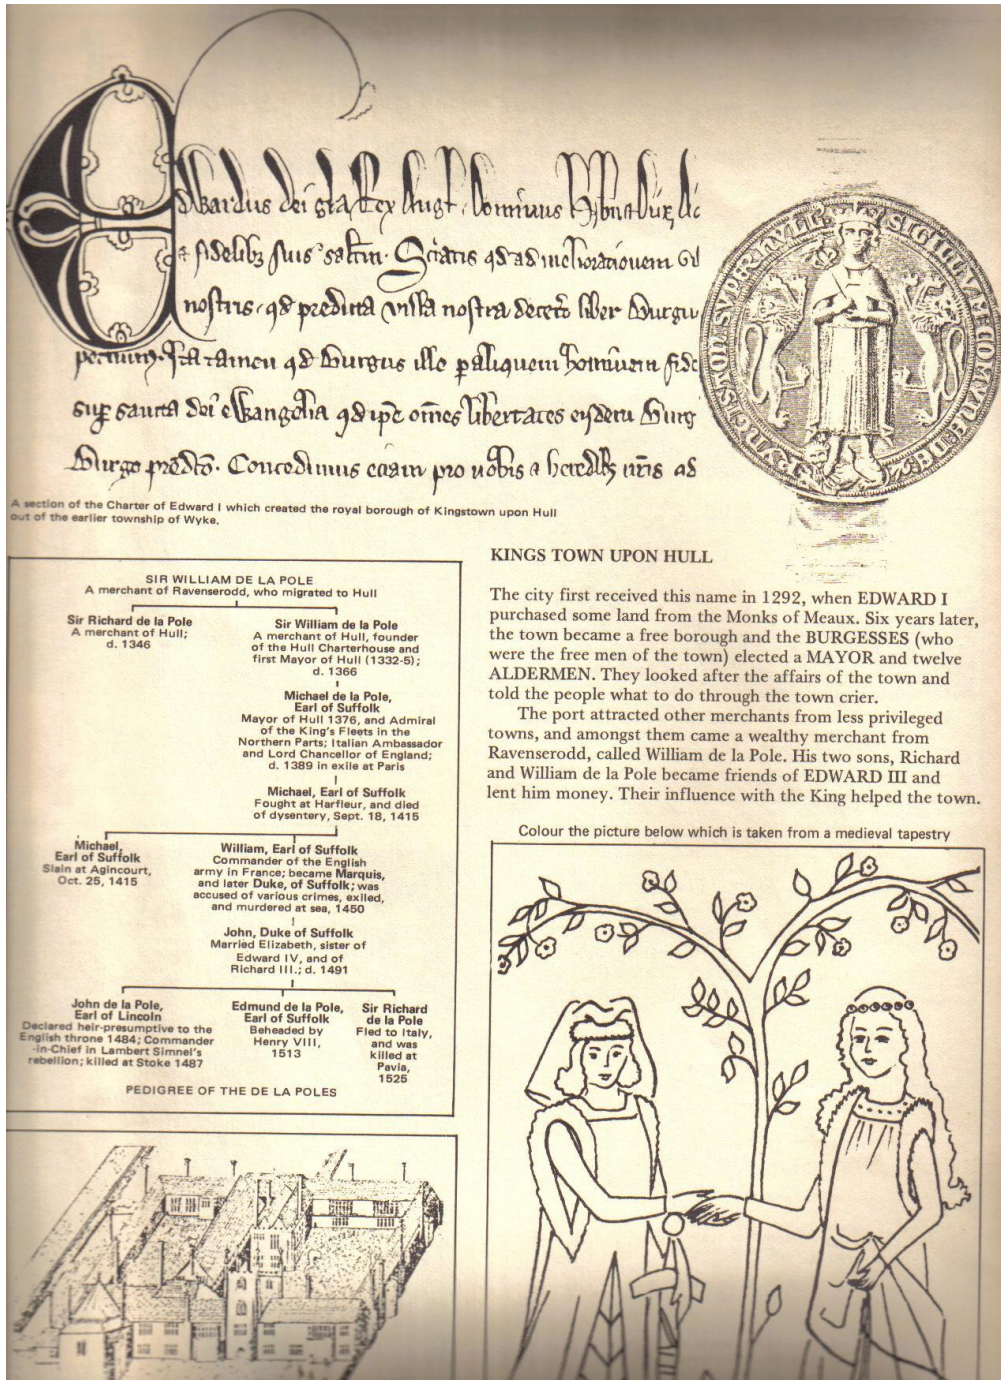 Edwardus dei gra Rex Angl Dominus Hibn Dux
fidelibz suis saltm. Sciatis qd ad meliorationem
nostris qd predicta villa nostra decetero liber Burgu
Ita tamen qd Burgus ille p aliquem hominem fide
sup sancta dei ewangelia qd ipe omes libertates eisdem Burg
Burgo predco. Concedimus eciam pro nobis heredibz nris ad
SIGILLVM COMVNE KYNGISTON SVPER HVLL
A section of the Charter of Edward I which created the royal borough of Kingstown upon Hull
out of the earlier township of Wyke.
SIR WILLIAM DE LA POLE
A merchant of Ravenserodd, who migrated to Hull
Sir Richard de la Pole
A merchant of Hull;
d. 1346
Sir William de la Pole
A merchant of Hull, founder
of the Hull Charterhouse and
first Mayor of Hull (1332-5);
d. 1366
Michael de la Pole,
Earl of Suffolk
Mayor of Hull 1376, and Admiral
of the King's Fleets in the
Northern Parts; Italian Ambassador
and Lord Chancellor of England;
d. 1389 in exile at Paris
Michael, Earl of Suffolk
Fought at Harfleur, and died
of dysentery, Sept. 18, 1415
Michael,
Earl of Suffolk
Slain at Agincourt,
Oct. 25, 1415
William, Earl of Suffolk
Commander of the English
army in France; became Marquis,
and later Duke, of Suffolk; was
accused of various crimes, exiled,
and murdered at sea, 1450
John, Duke of Suffolk
Married Elizabeth, sister of
Edward IV, and of
Richard III.; d. 1491
John de la Pole,
Earl of Lincoln
Declared heir-presumptive to the
English throne 1484; Commander
-in-Chief in Lambert Simnel's
rebellion; killed at Stoke 1487
Edmund de la Pole,
Earl of Suffolk
Beheaded by
Henry VIII,
1513
Sir Richard
de la Pole
Fled to Italy,
and was
killed at
Pavia,
1525
PEDIGREE OF THE DE LA POLES
KINGS TOWN UPON HULL
The city first received this name in 1292, when EDWARD I
purchased some land from the Monks of Meaux. Six years later,
the town became a free borough and the BURGESSES (who
were the free men of the town) elected a MAYOR and twelve
ALDERMEN. They looked after the affairs of the town and
told the people what to do through the town crier.
The port attracted other merchants from less privileged
towns, and amongst them came a wealthy merchant from
Ravenserodd, called William de la Pole. His two sons, Richard
and William de la Pole became friends of EDWARD III and
lent him money. Their influence with the King helped the town.
Colour the picture below which is taken from a medieval tapestry